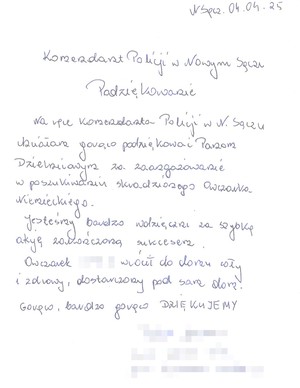 N. Sącz. 04.04.25
Komendant Policji w Nowym Sączu
Podziękowanie
Na ręce Komendanta Policji w N. Sączu
chciałam gorąco podziękować Panom
Dzielnicowym za zaangażowanie
w poszukiwaniu skradzionego Owczarka
Niemieckiego.
Jesteśmy bardzo wdzięczni za szybką
akcję zakończoną sukcesem.
Owczarek wrócił do domu cały
i zdrowy, dostarczony pod sam dom.
Gorąco, bardzo gorąco DZIĘKUJEMY